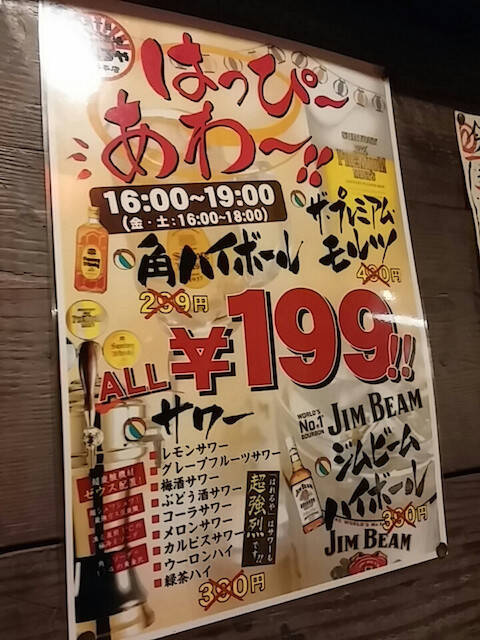 はっぴ〜
あわ〜!!
16:00〜19:00
(金・土:16:00~18:00)
SUNTORY
THE
PREMIUM
MALT'S
ザ・プレミアム
モルツ
430円
角ハイボール
299円
ALL ¥199!!
サワー
レモンサワー
グレープフルーツサワー
梅酒サワー
ぶどう酒サワー
コーラサワー
メロンサワー
カルピスサワー
ウーロンハイ
緑茶ハイ
「はれるや」はサワーも
超強烈です!!
330円
ゼウス配置!
WORLD'S
No.1
BOURBON
JIM BEAM
ジムビーム
ハイボール
330円
JIM BEAM